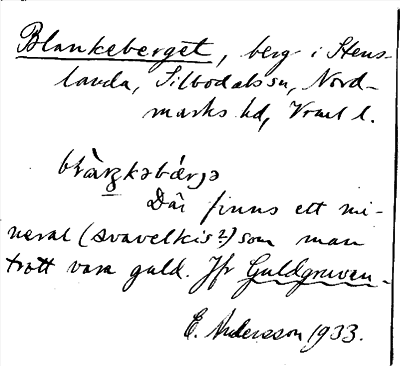 Blankeberget, berg i Stens-
landa, Silbodals sn, Nord-
marks hd, Vrml l.
blàŋkəbǽrjə
Där finns ett mi-
neral (svavelkis?) som man
trott vara guld. Jfr Guldgruvan.
E. Andersson 1933.